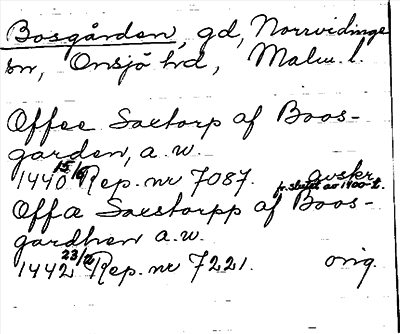 Bosgården, gd, Norrvidinge
sn, Onsjö hd, Malm. l.
Offee Saxtorp af Boos-
garden, a.w.
1440 15/6 Rep. nr 7087. avskr.
fr. slutet av 1400-t.
Offa Saxstorpp af Boos-
gardhen a.w.
1442 23/2 Rep. nr 7221. orig.